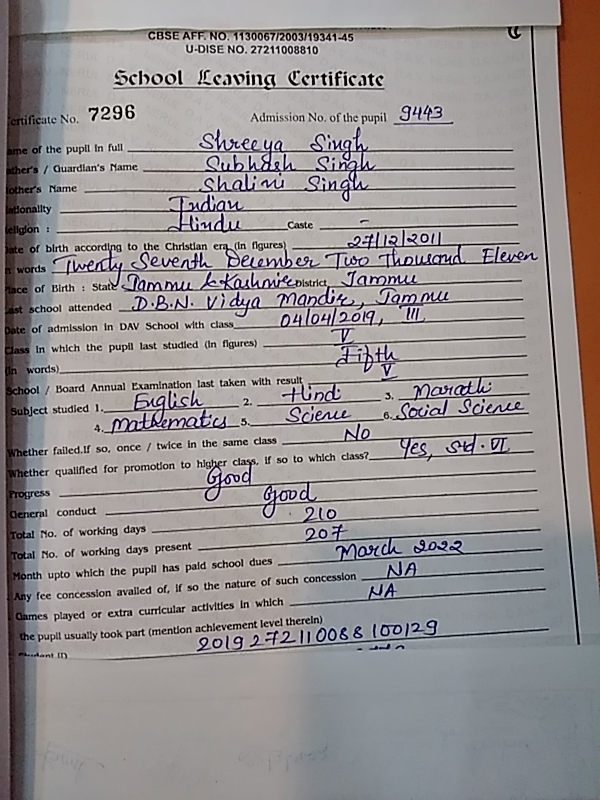 CBSE AFF. NO. 1130067/2003/19341-45
U-DISE NO. 27211008810
School Leaving Certificate
ertificate No. 7296 Admission No. of the pupil 9443
ame of the pupil in full Shreeya Singh
ather's / Guardian's Name Subhash Singh
other's Name Shalini Singh
ationality Indian
eligion : Hindu Caste -
ate of birth according to the Christian era (in figures) 27/12/2011
n words Twenty Seventh December Two Thousand Eleven
lace of Birth : State Jammu & Kashmir District Jammu
ast school attended D.B.N. Vidya Mandir, Jammu
Date of admission in DAV School with class 04/04/2019, III
Class in which the pupil last studied (in figures) V
(in words) Fifth
School / Board Annual Examination last taken with result V
Subject studied 1. English 2. Hindi 3. Marathi
4. Mathematics 5. Science 6. Social Science
Whether failed.If so, once / twice in the same class No
Whether qualified for promotion to higher class, if so to which class? Yes, Std. VI
Progress Good
General conduct Good
Total No. of working days 210
Total No. of working days present 207
Month upto which the pupil has paid school dues March 2022
Any fee concession availed of, if so the nature of such concession NA
Games played or extra curricular activities in which NA
the pupil usually took part (mention achievement level therein)
Student ID 2019272110088100129